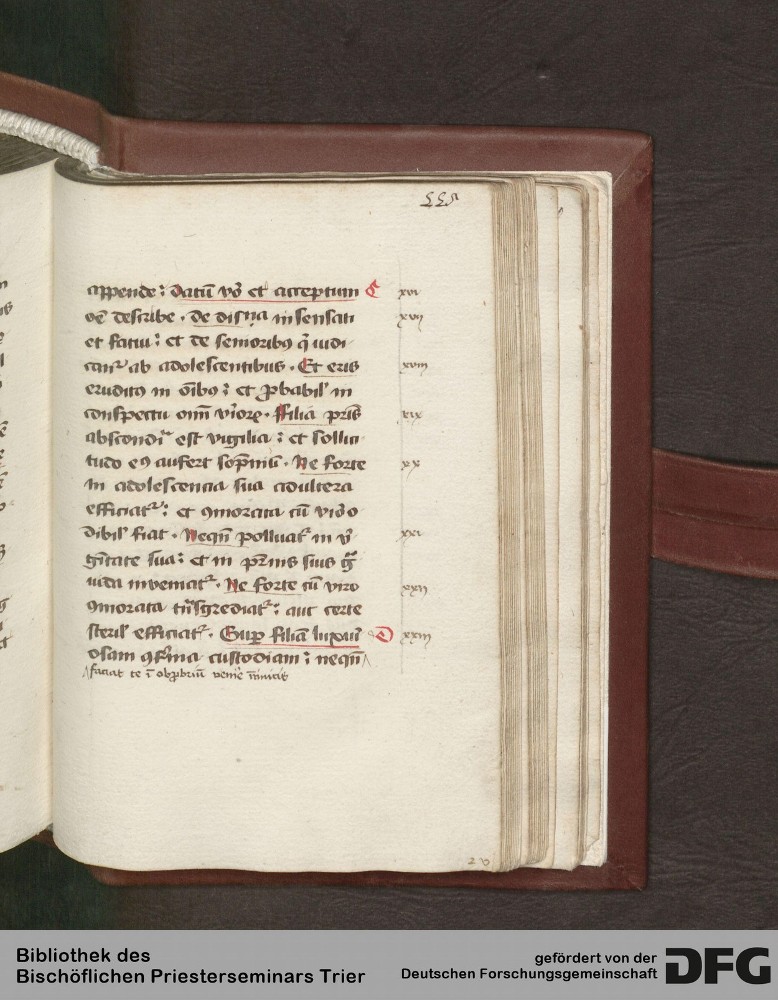 appende : Datū v̄o et acceptum C xvi
oē describe . de disci͞na insensati xvii
et fatui : et de senioribꝫ q̄ iudi-
cant᷑ ab adolescentibus . Et eris xviii
eruditꝰ in oībꝫ : et ꝓbabil' in
conspectu oīm vīorꝝ . Filia p̄ris xix
abscondi᷑ est vigilia : et sollici-
tudo eꝰ aufert sop̄niū . Ne forte xx
in adolescencia sua adultera
efficiat᷑ : et ꝯmorata cū viro o-
dibil' fiat . Neqn̄ polluat᷑ in v̄-
ginitate sua : et in pat̄nis suis g̃-
uida inveniat᷑ . Ne forte cū viro xxii
ꝯmorata tn̄sgrediat᷑ : aut certe
steril' efficiat᷑ . Suꝑ filiā luxuri- D xxiii
osam ꝯfirma custodiam : neqn̄
faciat te ī obꝓbriū venire inimicis
xxi
20
Bibliothek des
Bischöflichen Priesterseminars Trier
gefördert von der
Deutschen Forschungsgemeinschaft
DFG